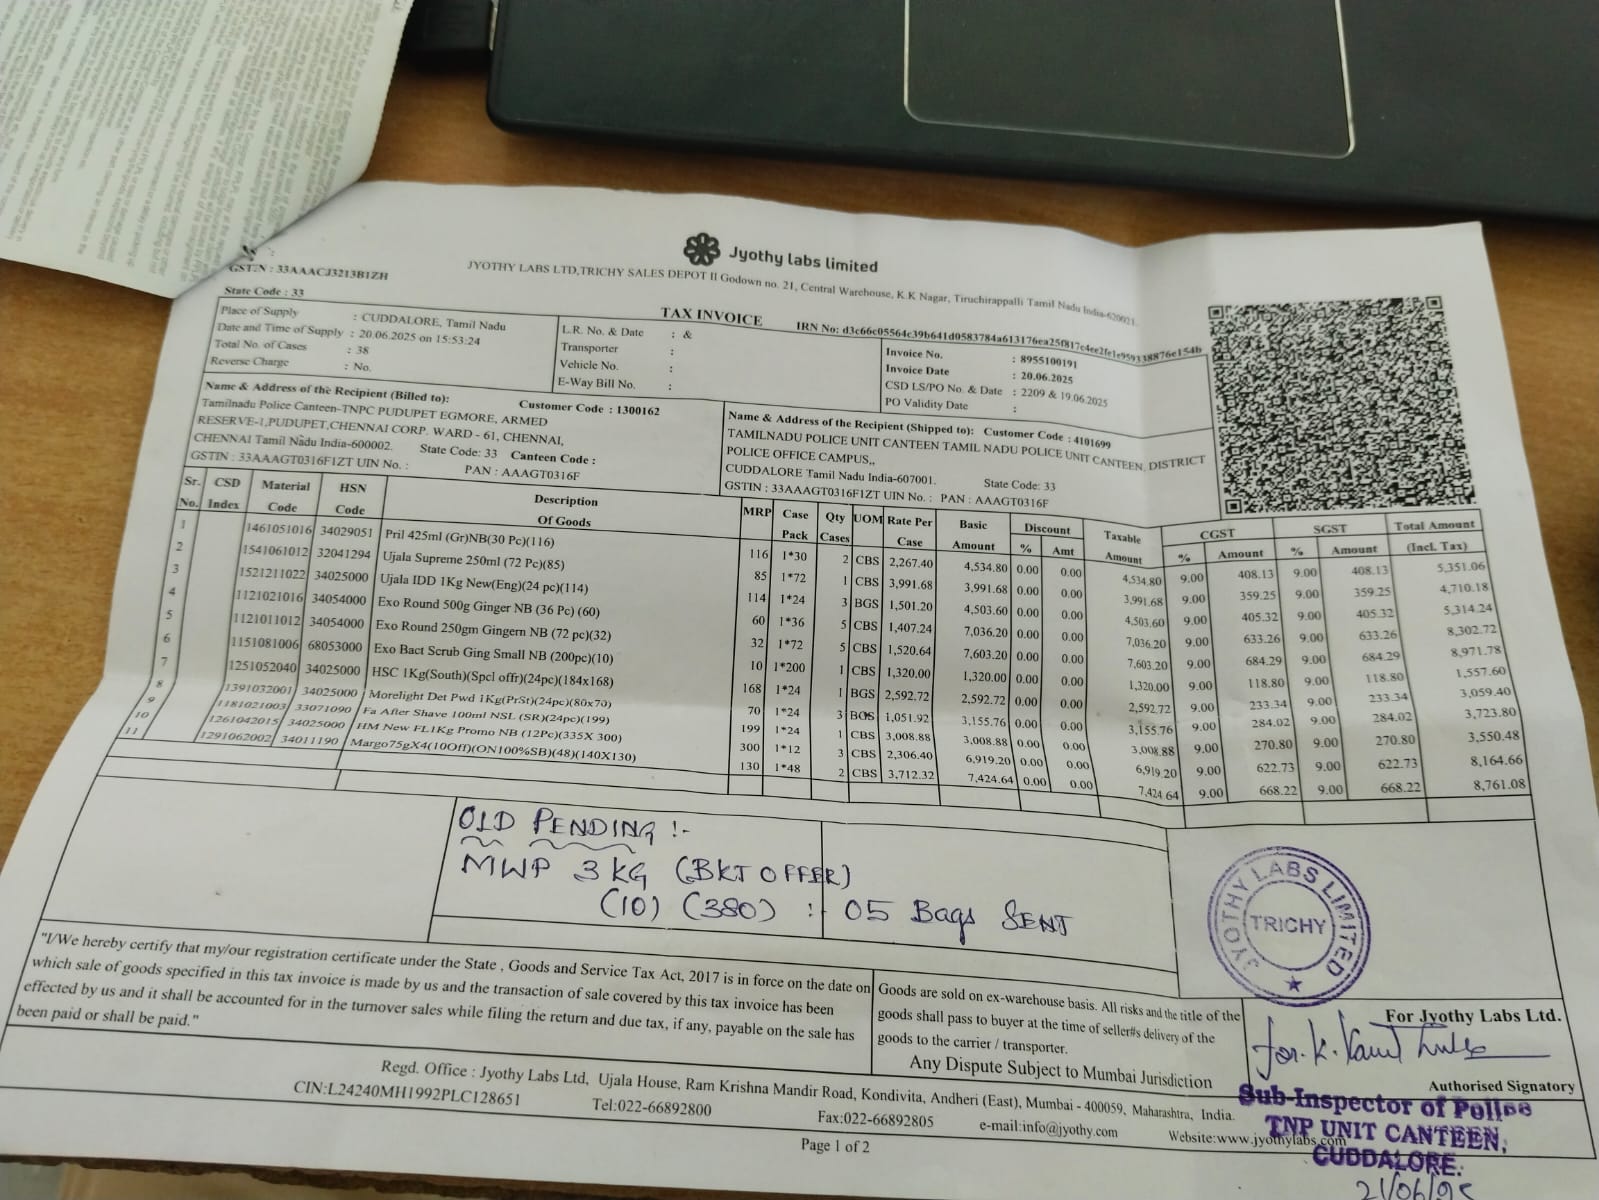 Jyothy labs limited
JYOTHY LABS LTD,TRICHY SALES DEPOT II Godown no. 21, Central Warehouse, K.K Nagar, Tiruchirappalli Tamil Nadu India-620021.
GSTIN : 33AAACJ3213B1ZH
State Code : 33
TAX INVOICE
IRN No: d3c66c05564c39b641d0583784a613176ea25f817c4ee2fe1e959338876e154b
Place of Supply : CUDDALORE, Tamil Nadu
Date and Time of Supply : 20.06.2025 on 15:53:24
Total No. of Cases : 38
Reverse Charge : No.
L.R. No. & Date : &
Transporter :
Vehicle No. :
E-Way Bill No. :
Invoice No. : 8955100191
Invoice Date : 20.06.2025
CSD LS/PO No. & Date : 2209 & 19.06.2025
PO Validity Date :
Name & Address of the Recipient (Billed to): Customer Code : 1300162
Tamilnadu Police Canteen-TNPC PUDUPET EGMORE, ARMED
RESERVE-1,PUDUPET,CHENNAI CORP. WARD - 61, CHENNAI,
CHENNAI Tamil Nadu India-600002. State Code: 33 Canteen Code :
GSTIN : 33AAAGT0316F1ZT UIN No. : PAN : AAAGT0316F
Name & Address of the Recipient (Shipped to): Customer Code : 4101699
TAMILNADU POLICE UNIT CANTEEN TAMIL NADU POLICE UNIT CANTEEN, DISTRICT
POLICE OFFICE CAMPUS,,
CUDDALORE Tamil Nadu India-607001. State Code: 33
GSTIN : 33AAAGT0316F1ZT UIN No. : PAN : AAAGT0316F
Sr. No. CSD Index Material Code HSN Code Description Of Goods MRP Case Pack Qty Cases UOM Rate Per Case Basic Amount Discount % Amt Taxable Amount CGST % Amount SGST % Amount Total Amount (Incl. Tax)
1 1461051016 34029051 Pril 425ml (Gr)NB(30 Pc)(116) 116 1*30 2 CBS 2,267.40 4,534.80 0.00 0.00 4,534.80 9.00 408.13 9.00 408.13 5,351.06
2 1541061012 32041294 Ujala Supreme 250ml (72 Pc)(85) 85 1*72 1 CBS 3,991.68 3,991.68 0.00 0.00 3,991.68 9.00 359.25 9.00 359.25 4,710.18
3 1521211022 34025000 Ujala IDD 1Kg New(Eng)(24 pc)(114) 114 1*24 3 BGS 1,501.20 4,503.60 0.00 0.00 4,503.60 9.00 405.32 9.00 405.32 5,314.24
4 1121021016 34054000 Exo Round 500g Ginger NB (36 Pc) (60) 60 1*36 5 CBS 1,407.24 7,036.20 0.00 0.00 7,036.20 9.00 633.26 9.00 633.26 8,302.72
5 1121011012 34054000 Exo Round 250gm Gingern NB (72 pc)(32) 32 1*72 5 CBS 1,520.64 7,603.20 0.00 0.00 7,603.20 9.00 684.29 9.00 684.29 8,971.78
6 1151081006 68053000 Exo Bact Scrub Ging Small NB (200pc)(10) 10 1*200 1 CBS 1,320.00 1,320.00 0.00 0.00 1,320.00 9.00 118.80 9.00 118.80 1,557.60
7 1251052040 34025000 HSC 1Kg(South)(Spcl offr)(24pc)(184x168) 168 1*24 1 BGS 2,592.72 2,592.72 0.00 0.00 2,592.72 9.00 233.34 9.00 233.34 3,059.40
8 1391032001 34025000 Morelight Det Pwd 1Kg(PrSt)(24pc)(80x70) 70 1*24 3 BGS 1,051.92 3,155.76 0.00 0.00 3,155.76 9.00 284.02 9.00 284.02 3,723.80
9 1181021003 33071090 Fa After Shave 100ml NSL (SR)(24pc)(199) 199 1*24 1 CBS 3,008.88 3,008.88 0.00 0.00 3,008.88 9.00 270.80 9.00 270.80 3,550.48
10 1261042015 34025000 HM New FL1Kg Promo NB (12Pc)(335X 300) 300 1*12 3 CBS 2,306.40 6,919.20 0.00 0.00 6,919.20 9.00 622.73 9.00 622.73 8,164.66
11 1291062002 34011190 Margo75gX4(10Off)(ON100%SB)(48)(140X130) 130 1*48 2 CBS 3,712.32 7,424.64 0.00 0.00 7,424.64 9.00 668.22 9.00 668.22 8,761.08
OLD PENDING :-
MWP 3 KG (BKT OFFER)
(10) (380) :- 05 Bags SENT
JYOTHY LABS LIMITED
TRICHY
"I/We hereby certify that my/our registration certificate under the State , Goods and Service Tax Act, 2017 is in force on the date on
which sale of goods specified in this tax invoice is made by us and the transaction of sale covered by this tax invoice has been
effected by us and it shall be accounted for in the turnover sales while filing the return and due tax, if any, payable on the sale has
been paid or shall be paid."
Goods are sold on ex-warehouse basis. All risks and the title of the
goods shall pass to buyer at the time of seller#s delivery of the
goods to the carrier / transporter.
Any Dispute Subject to Mumbai Jurisdiction
For Jyothy Labs Ltd.
for. K.
Authorised Signatory
Regd. Office : Jyothy Labs Ltd, Ujala House, Ram Krishna Mandir Road, Kondivita, Andheri (East), Mumbai - 400059, Maharashtra, India.
CIN:L24240MH1992PLC128651 Tel:022-66892800 Fax:022-66892805 e-mail:info@jyothy.com Website:www.jyothylabs.com
Page 1 of 2
Sub-Inspector of Police
TNP UNIT CANTEEN,
CUDDALORE.
21/06/25